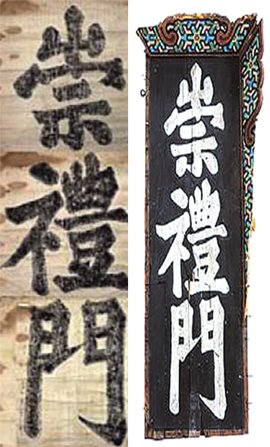 崇禮門
崇禮門